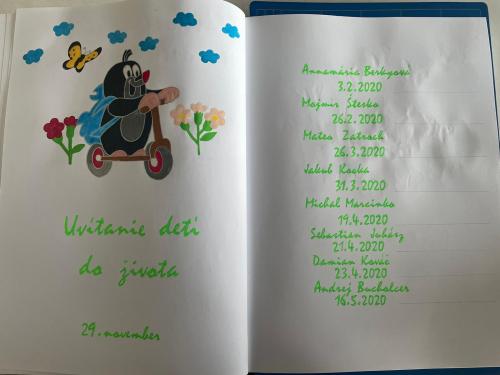 Uvítanie detí
do života
29. november
Annamária Berkyová
3.2.2020
Mojmír Štesko
26.2.2020
Mateo Zatroch
26.3.2020
Jakub Kooka
31.3.2020
Michal Marcinko
19.4.2020
Sebastian Juhász
21.4.2020
Damian Kováč
23.4.2020
Andrej Bucholcer
16.5.2020